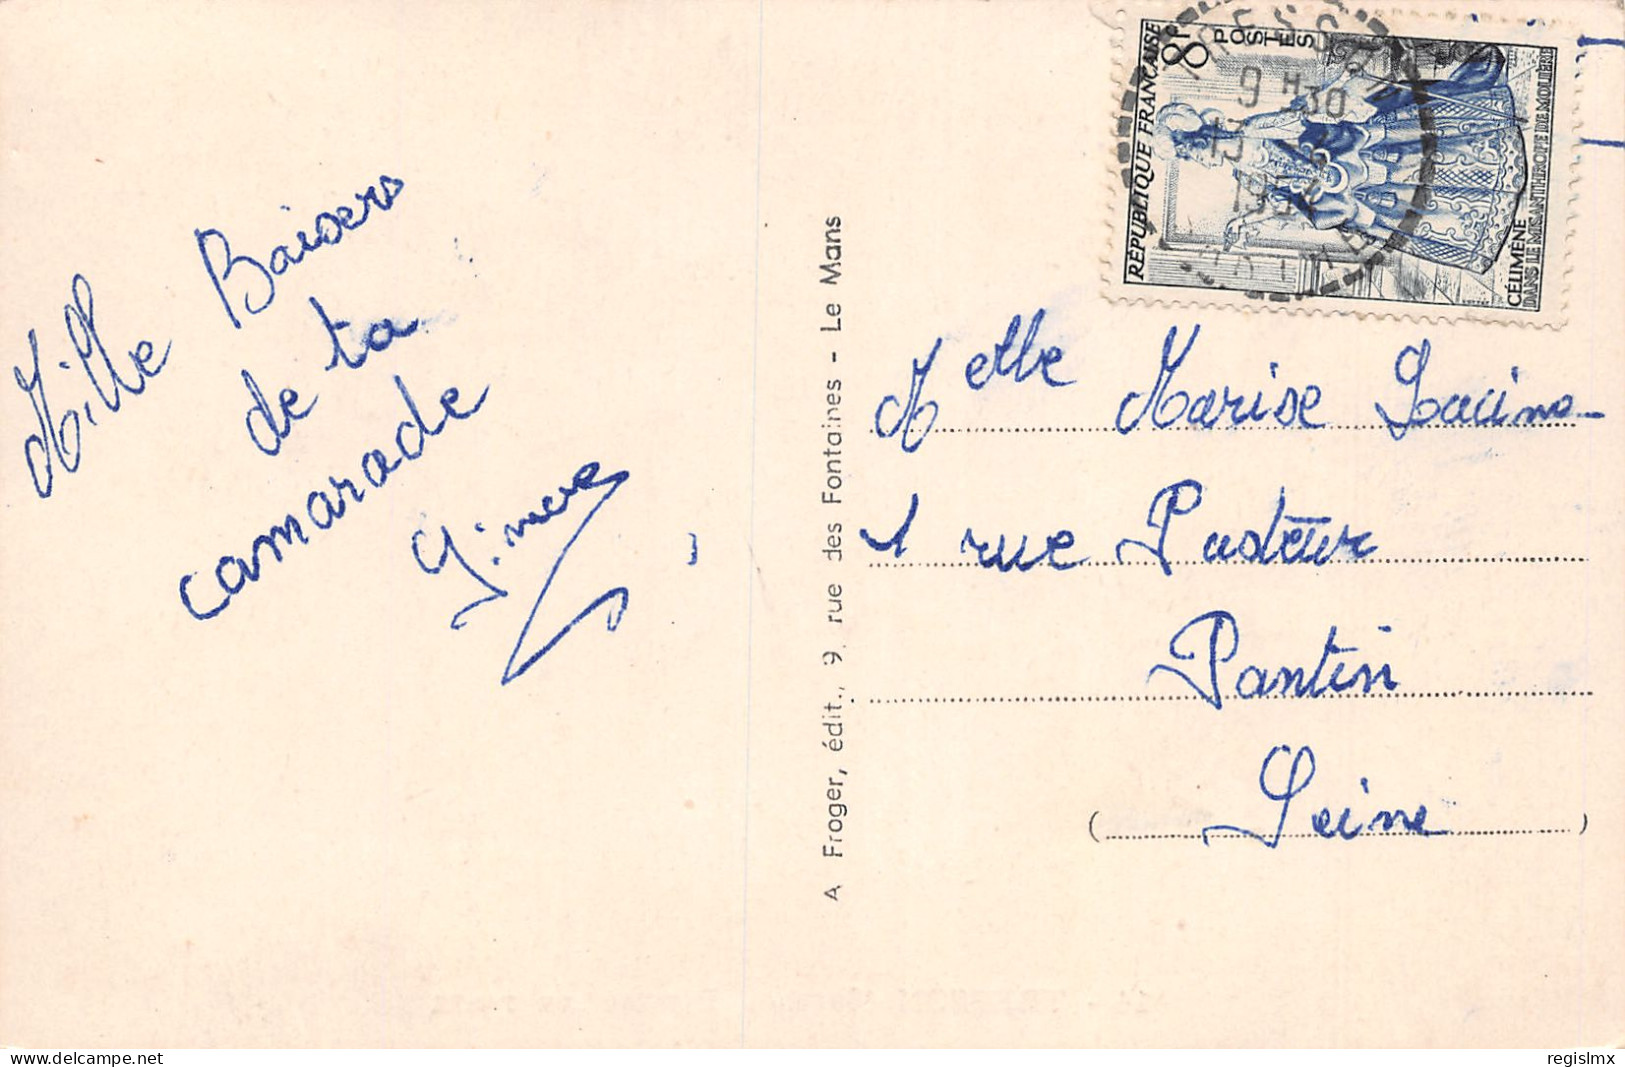 Mille Baisers
de ta
camarade
A Froger, édit., 9, rue des Fontaines - Le Mans
RÉPUBLIQUE FRANÇAISE
8F
POSTES
CÉLIMÈNE
DANS LE MISANTHROPE DE MOLIÈRE
9 H 30
13
Melle Marise
1 rue Pasteur
Pantin
(Seine)
regislmx